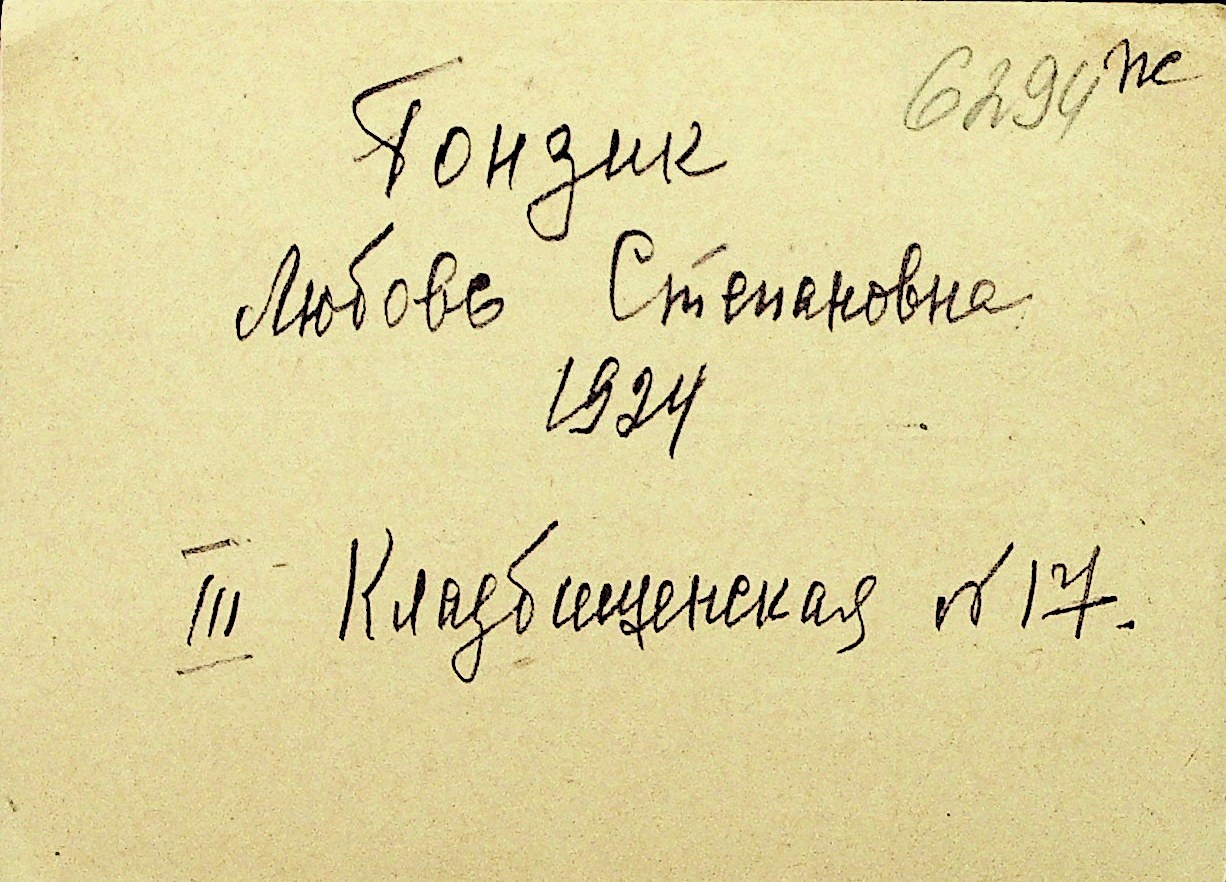 6294 же
Гондик
Любовь Степановна
1924
III Кладбищенская № 17.